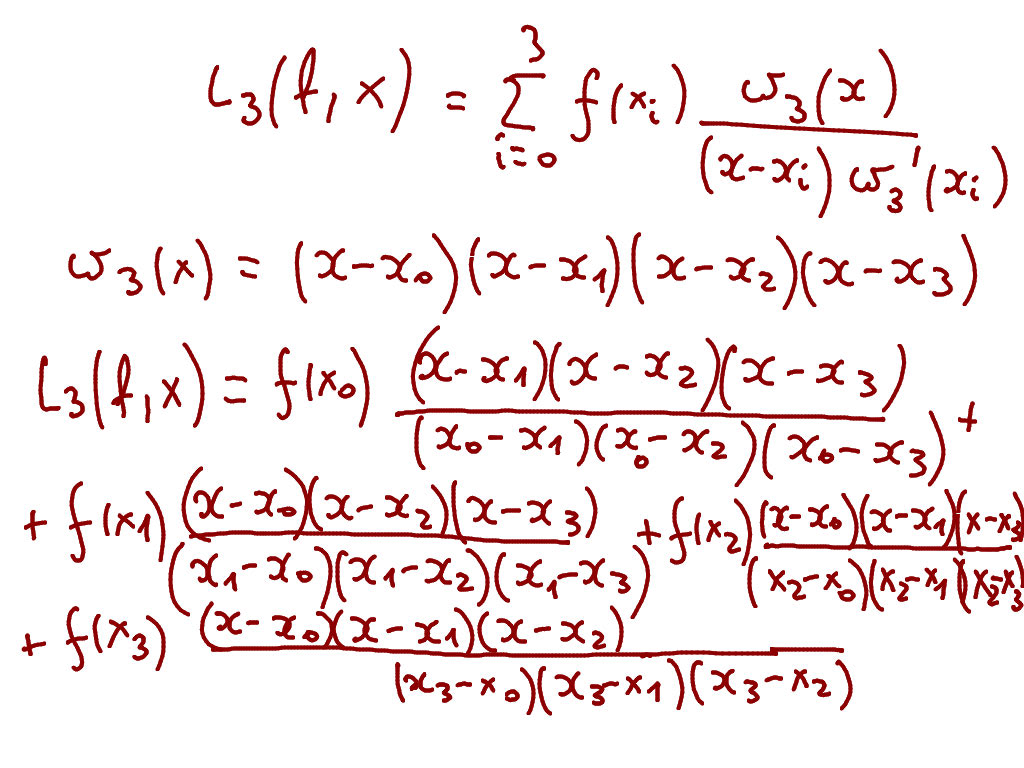 L₃(f, x) = ∑_{i=0}^{3} f(xᵢ) ω₃(x) / ((x-xᵢ) ω₃'(xᵢ))
ω₃(x) = (x-x₀)(x-x₁)(x-x₂)(x-x₃)
L₃(f, x) = f(x₀) (x-x₁)(x-x₂)(x-x₃) / ((x₀-x₁)(x₀-x₂)(x₀-x₃)) +
+ f(x₁) (x-x₀)(x-x₂)(x-x₃) / ((x₁-x₀)(x₁-x₂)(x₁-x₃)) + f(x₂) (x-x₀)(x-x₁)(x-x₃) / ((x₂-x₀)(x₂-x₁)(x₂-x₃))
+ f(x₃) (x-x₀)(x-x₁)(x-x₂) / ((x₃-x₀)(x₃-x₁)(x₃-x₂))